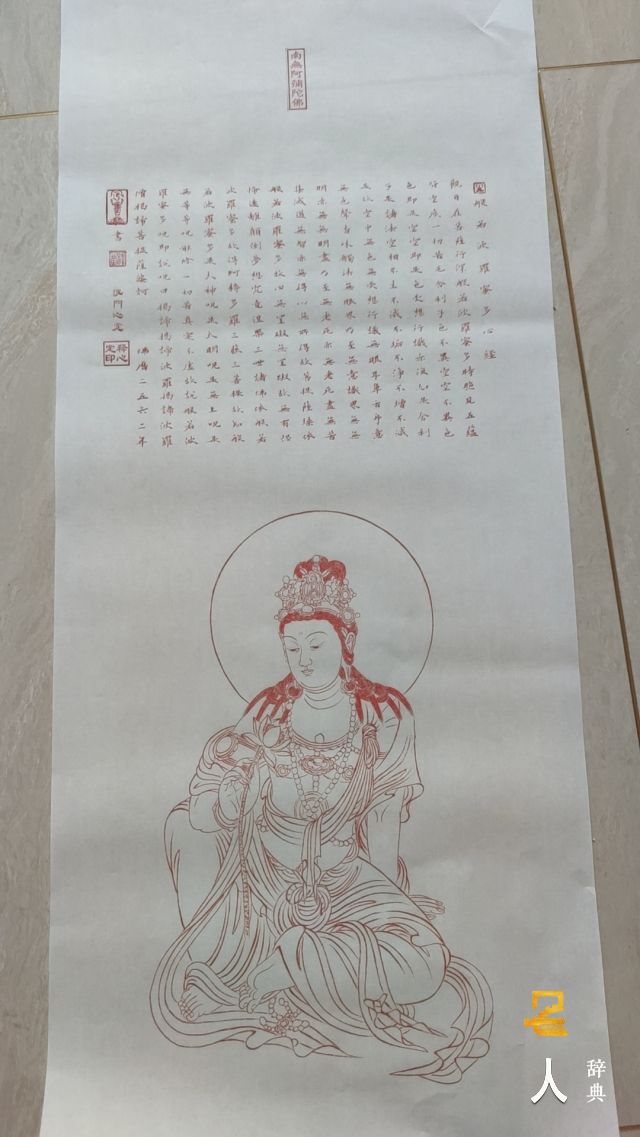 南無阿彌陀佛
般若波羅蜜多心經
觀自在菩薩行深般若波羅蜜多時照見五蘊
皆空度一切苦厄舍利子色不異空空不異色
色即是空空即是色受想行識亦復如是舍利
子是諸法空相不生不滅不垢不淨不增不減
是故空中無色無受想行識無眼耳鼻舌身意
無色聲香味觸法無眼界乃至無意識界無無
明亦無無明盡乃至無老死亦無老死盡無苦
集滅道無智亦無得以無所得故菩提薩埵依
般若波羅蜜多故心無罣礙無罣礙故無有恐
怖遠離顛倒夢想究竟涅槃三世諸佛依般若
波羅蜜多故得阿耨多羅三藐三菩提故知般
若波羅蜜多是大神咒是大明咒是無上咒是
無等等咒能除一切苦真實不虛故說般若波
羅蜜多咒即說咒曰揭諦揭諦波羅揭諦波羅
僧揭諦菩提薩婆訶 佛曆二五六二年
書 沙門心定
釋心定印
名人
辞典